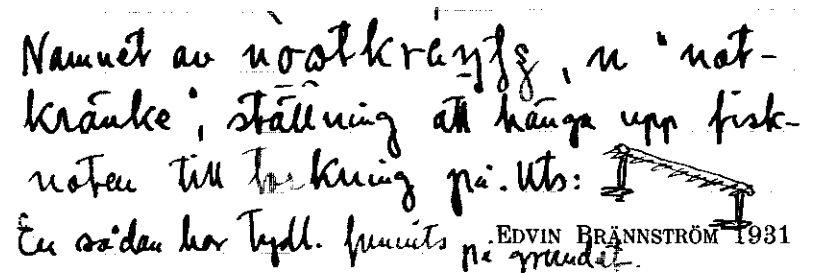 Namnet av , n 'not-
kränke', ställning att hänga upp fisk-
noten till torkning på. Uts:
En sådan har tydl. funnits på grundet.
EDVIN BRÄNNSTRÖM 1931